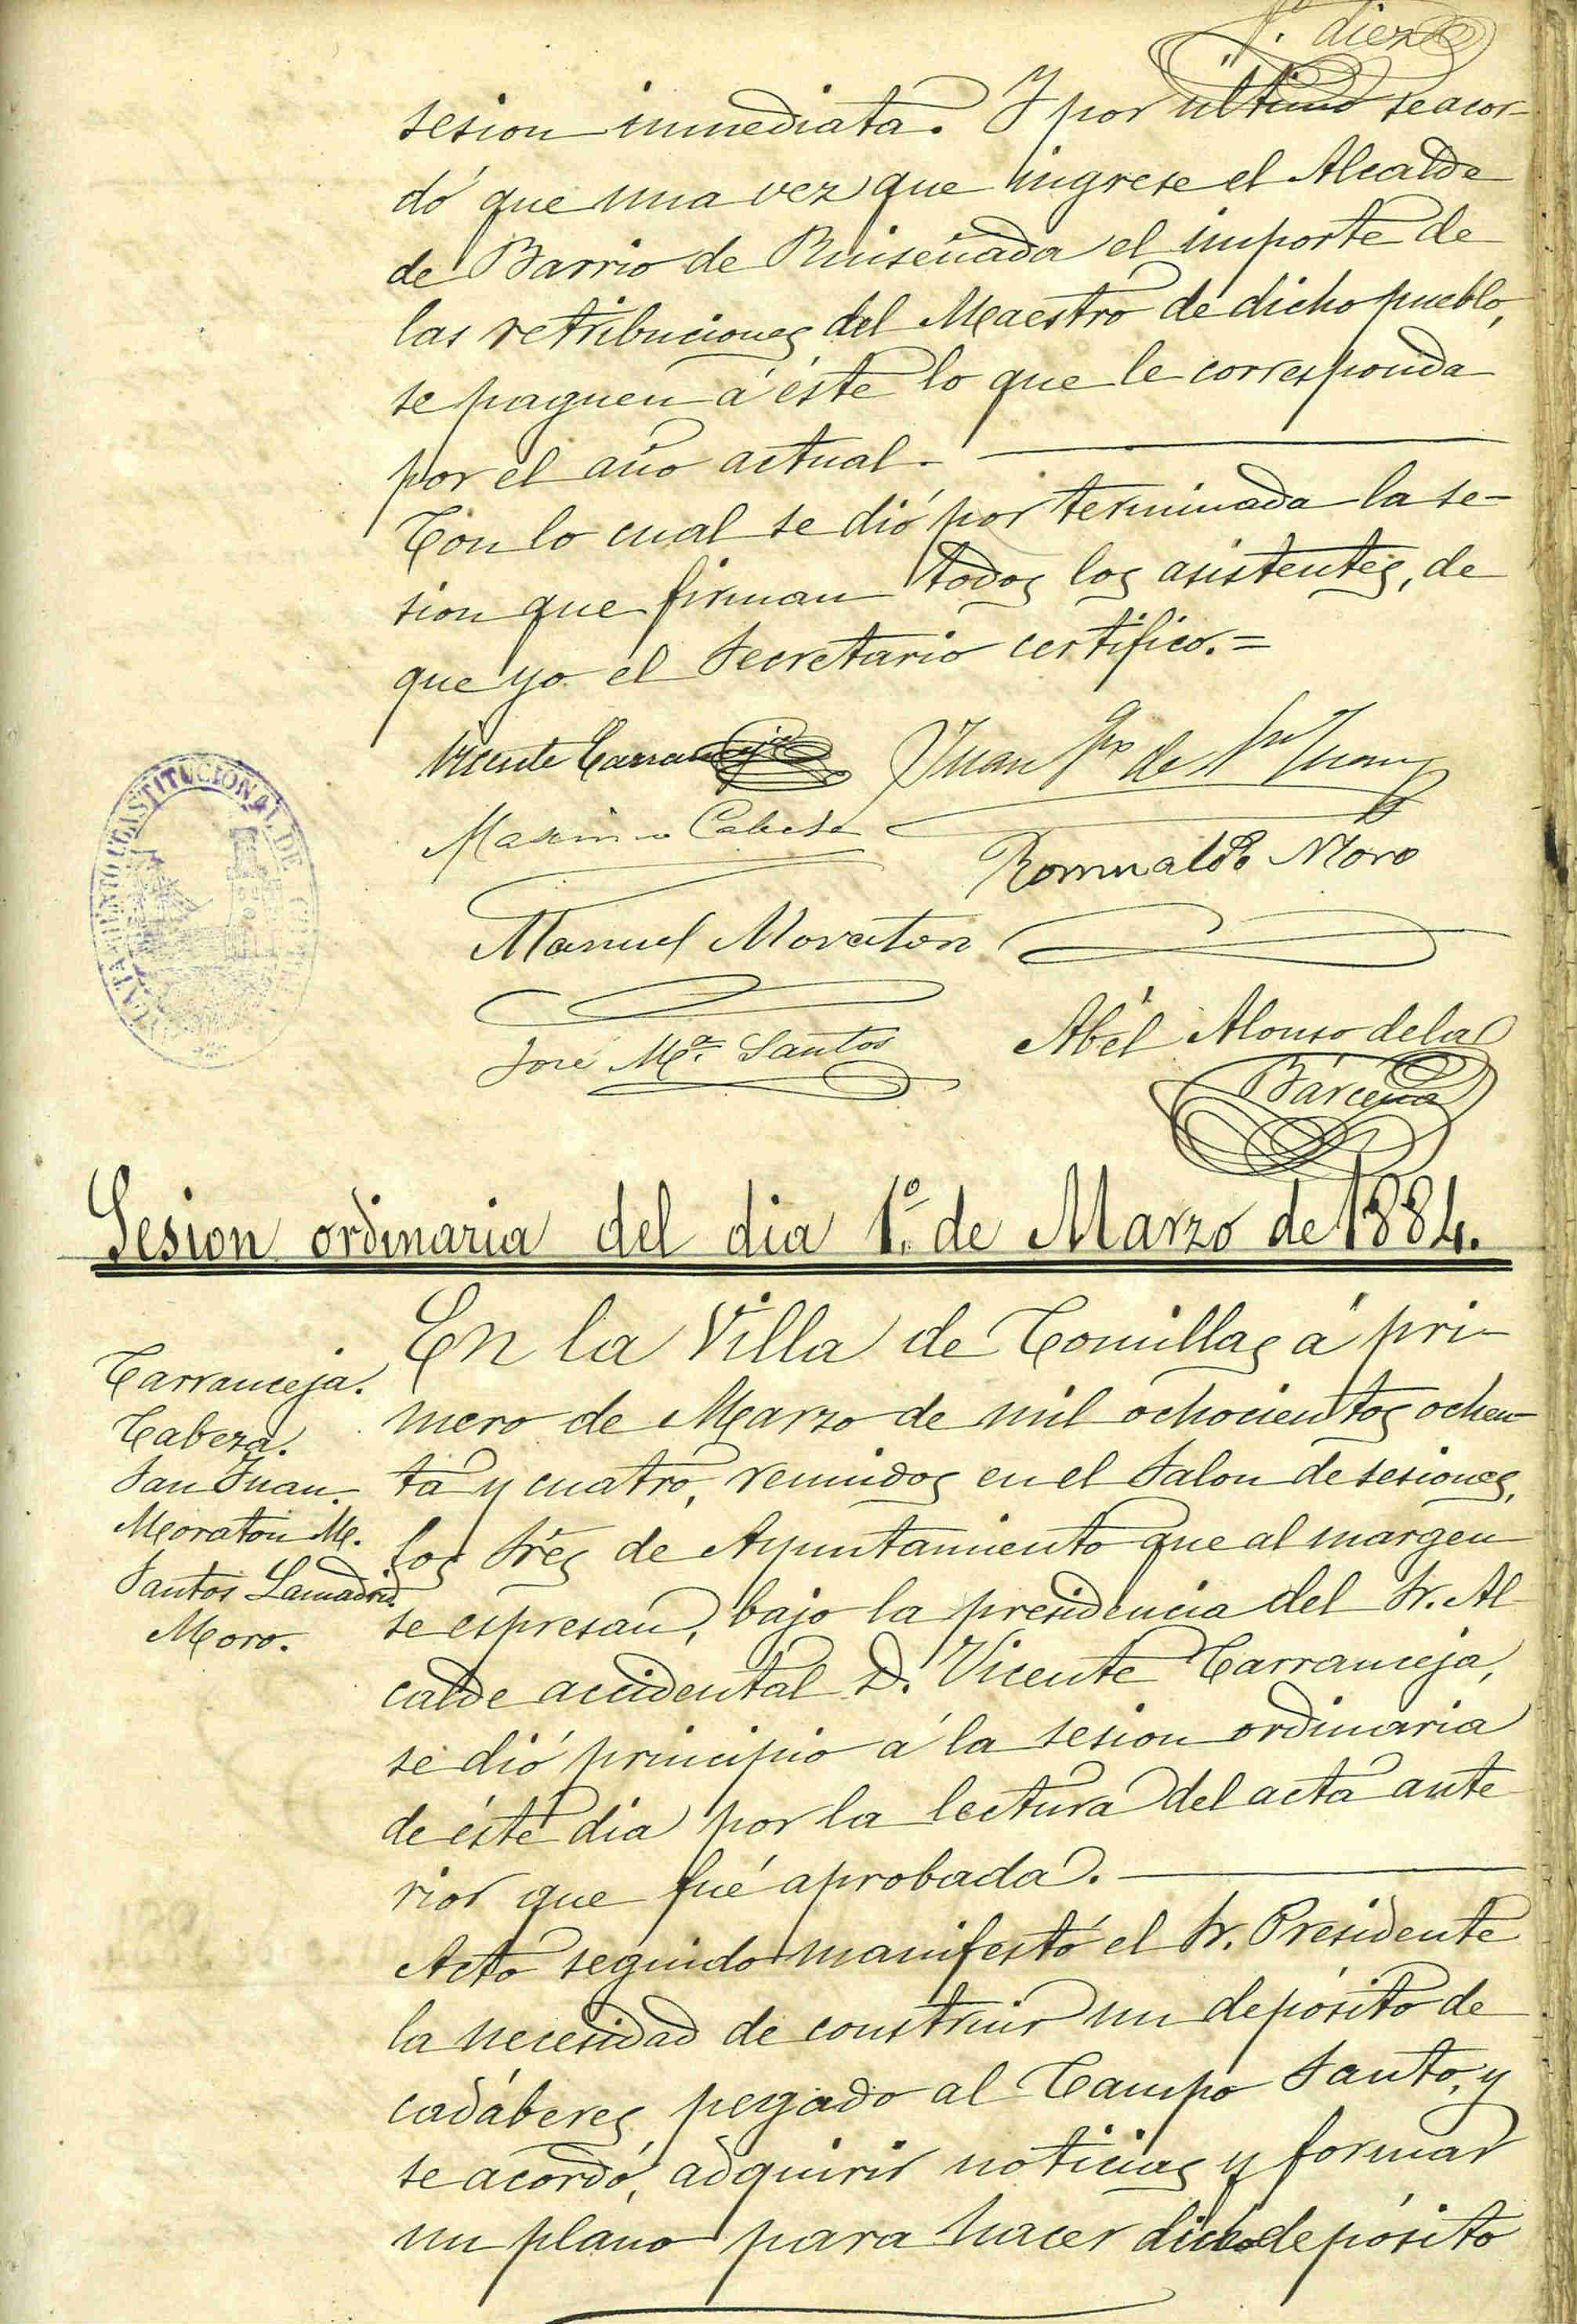 fº. diez
sesion inmediata. Y por último se acor-
dó que una vez que ingrese el Alcalde
de Barrio de Ruiseñada el importe de
las retribuciones del Maestro de dicho pueblo,
se paguen á éste lo que le corresponda
por el año actual.
Con lo cual se dió por terminada la se-
sion que firman todos los asistentes, de
que yo el Secretario certifico.=
Vicente Carranceja Juan de Sn Juan
Maximo Cabeza
Romualdo Moro
Manuel Moraton
José Mª. Santos
Abél Alonso de la
Bárcena
AYUNTAMIENTO CONSTITUCIONAL DE
Sesion ordinaria del dia 1º. de Marzo de 1884.
Carranceja.
Cabeza.
San Juan.
Moraton M.
Santos Lamadrid.
Moro.
En la Villa de Comillas á pri-
mero de Marzo de mil ochocientos ochen-
ta y cuatro, reunidos en el Salon de sesiones,
los Srés de Ayuntamiento que al margen
se espresan, bajo la presidencia del Sr. Al-
calde accidental D. Vicente Carranceja,
se dió principio á la sesion ordinaria
de éste dia por la lectura del acta ante-
rior que fué aprobada.
Acto seguido manifestó el Sr. Presidente
la necesidad de construir un depósito de
cadáberes pegado al Campo Santo, y
se acordó, adquirir noticias y formar
un plano para hacer dicho depósito